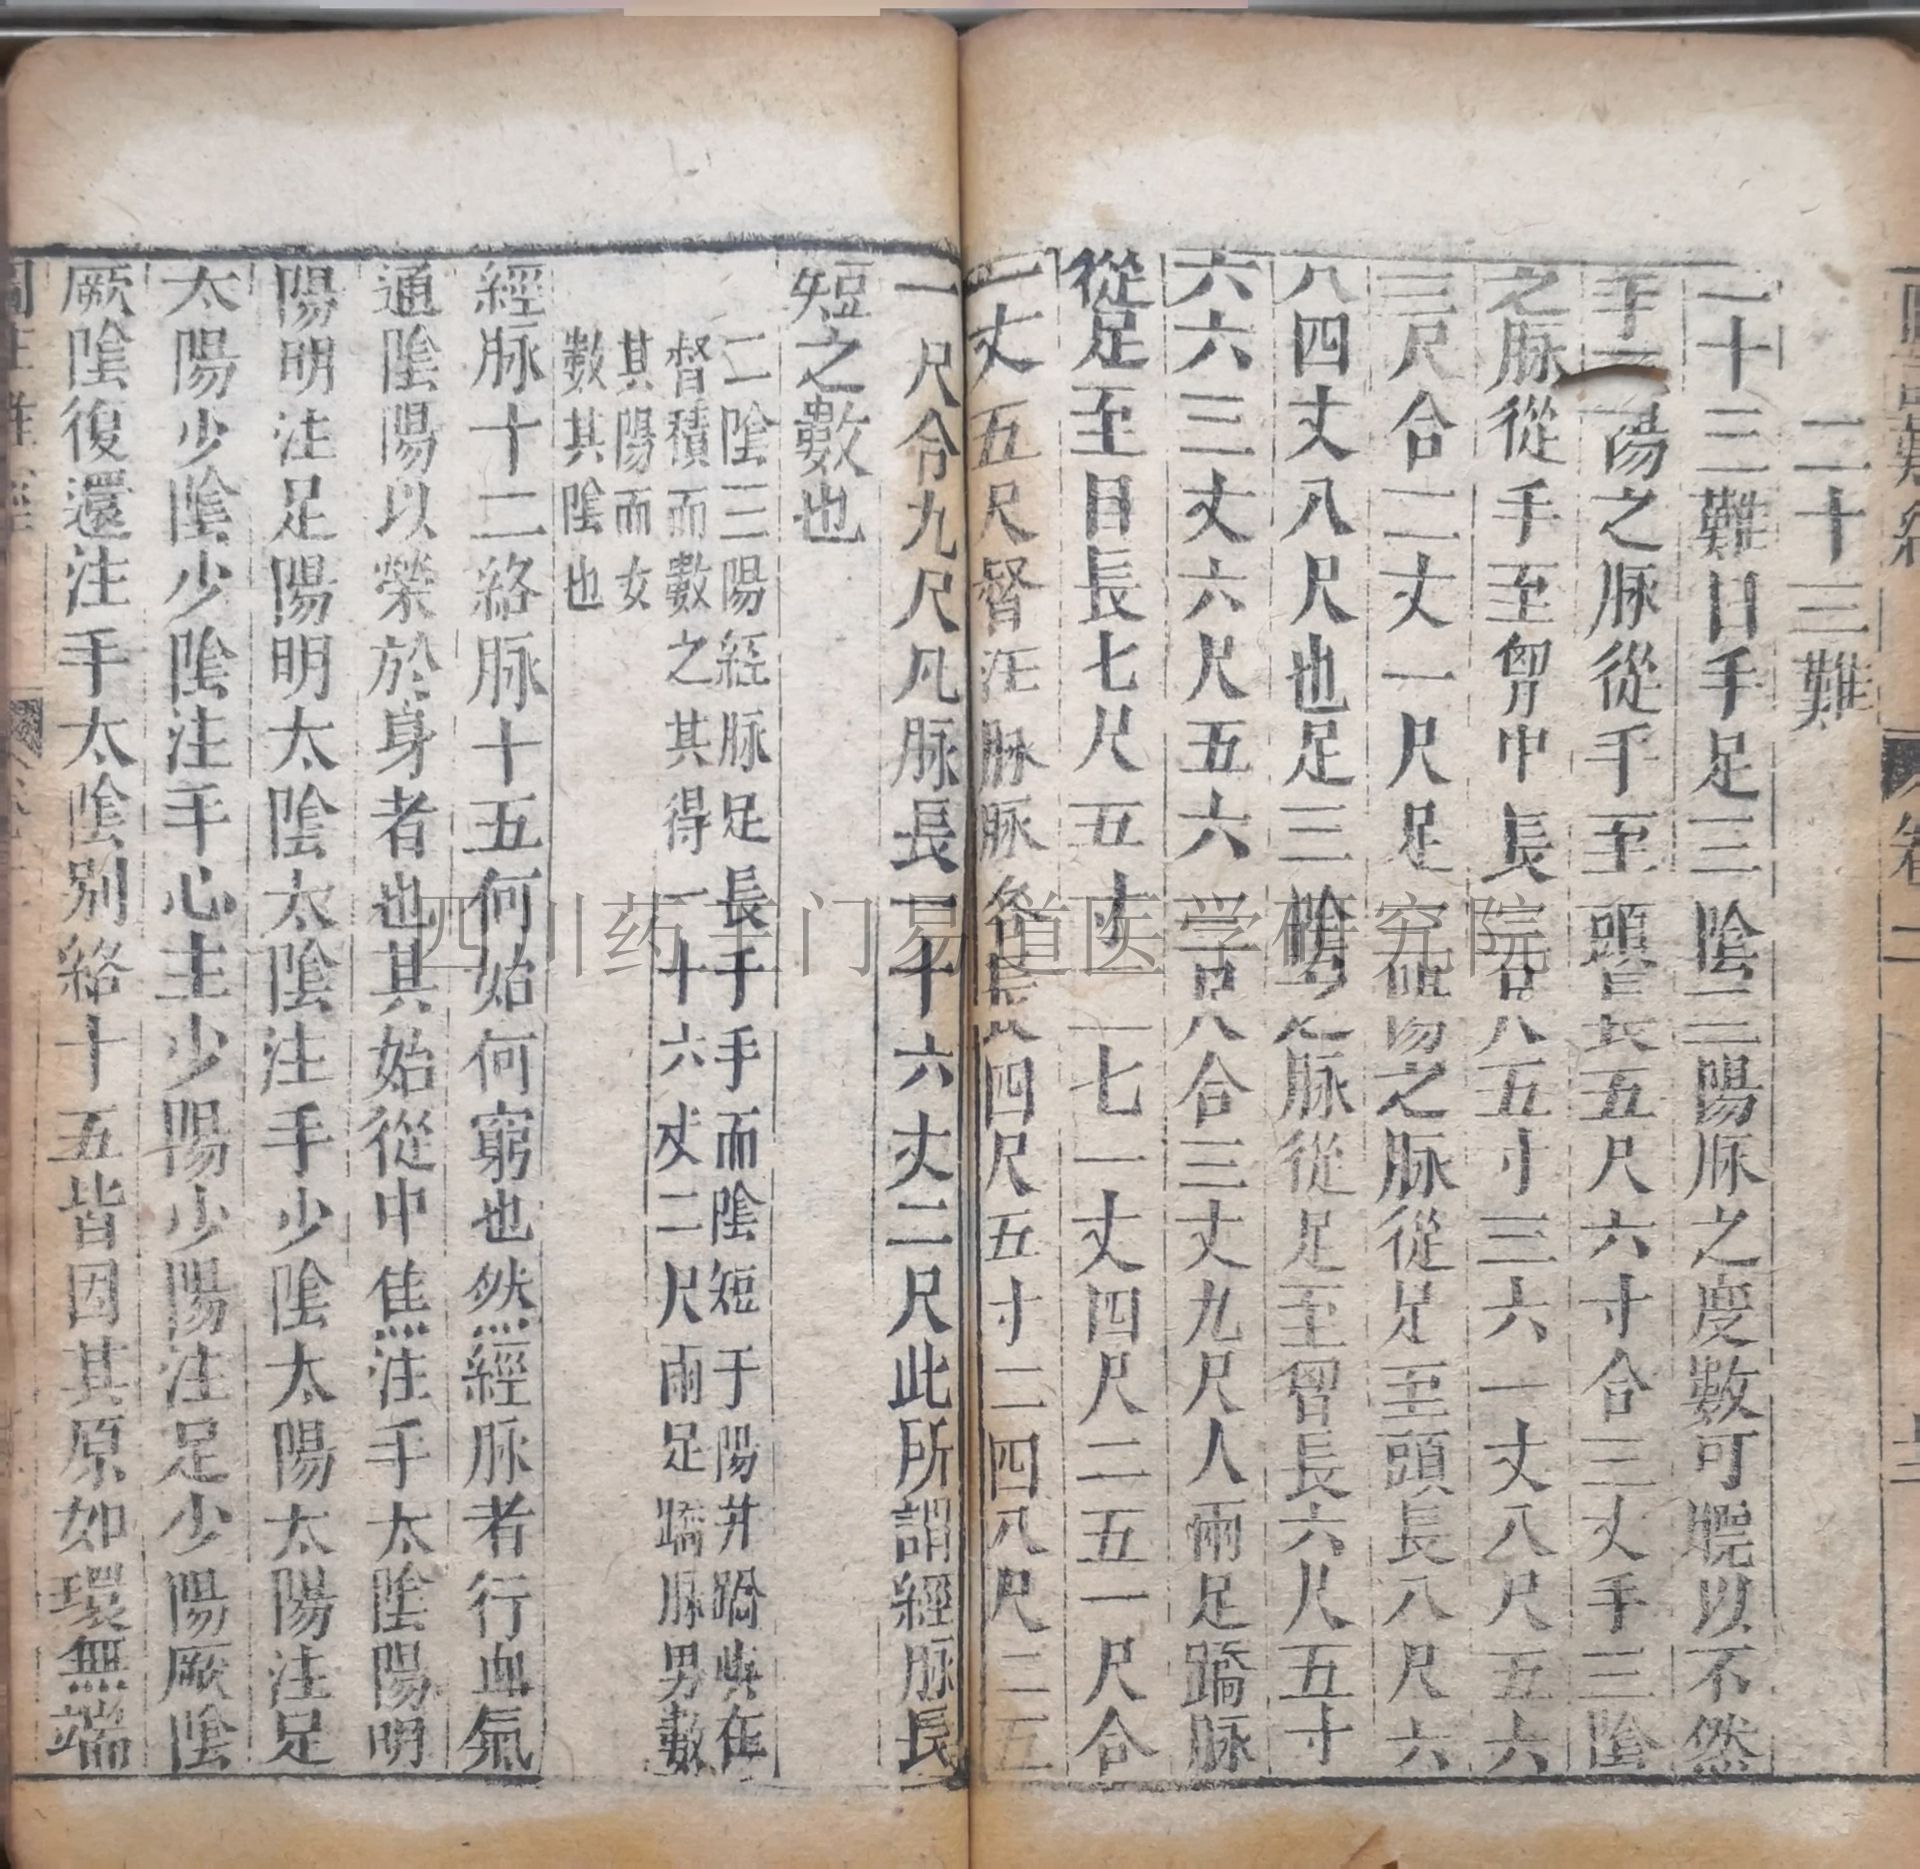 二十三難
二十三難曰手足三陰三陽脉之度數可曉以不然
手三陽之脉從手至頭長五尺六寸合三丈手三陰
之脉從手至胷中長三尺五寸三六一丈八尺五六
三尺合二丈一尺足三陽之脉從足至頭長八尺六
八四丈八尺也足三陰之脉從足至胷長六尺五寸
六六三丈六尺五六三尺合三丈九尺人兩足蹻脉
從足至目長七尺五寸二七一丈四尺二五一尺合
一丈五尺督任脉脉各長四尺五寸二四八尺二五
一尺合九尺凡脉長一十六丈二尺此所謂經脉長
短之數也
二陰三陽經脉足長手手而陰短于陽并蹻與任
督積而數之其得一十六丈二尺兩足蹻脉男數
其陽而女
數其陰也
經脉十二絡脉十五何始何窮也然經脉者行血氣
通陰陽以榮於身者也其始從中焦注手太陰陽明
陽明注足陽明太陰太陰注手少陰太陽太陽注足
太陽少陰少陰注手心主少陽少陽注足少陽厥陰
厥陰復還注手太陰別絡十五皆因其原如環無端
卷二
四川药王门易道医学研究院